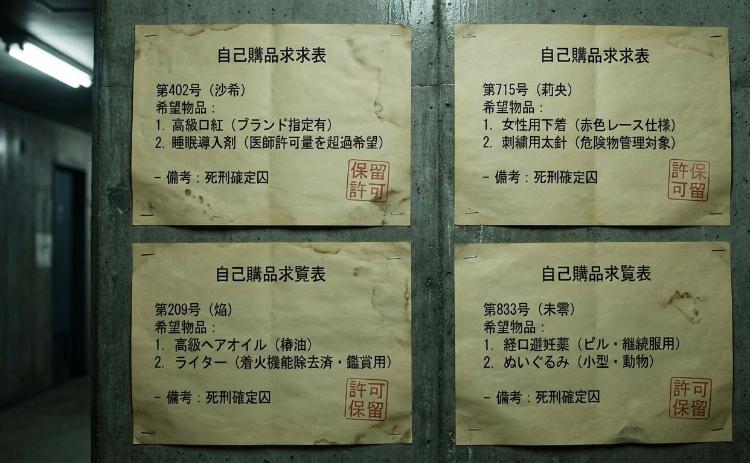 自己購品求求表
第402号（沙希）
希望物品：
1. 高級口紅（ブランド指定有）
2. 睡眠導入剤（医師許可量を超過希望）
- 備考：死刑確定囚
保留
許可
自己購品求求表
第715号（莉央）
希望物品：
1. 女性用下着（赤色レース仕様）
2. 刺繍用太針（危険物管理対象）
- 備考：死刑確定囚
許保
可留
自己購品求覧表
第209号（焔）
希望物品：
1. 高級ヘアオイル（椿油）
2. ライター（着火機能除去済・鑑賞用）
- 備考：死刑確定囚
許可
保留
自己購品求覧表
第833号（未零）
希望物品：
1. 経口避妊薬（ピル・継続服用）
2. ぬいぐるみ（小型・動物）
- 備考：死刑確定囚
許可
保留